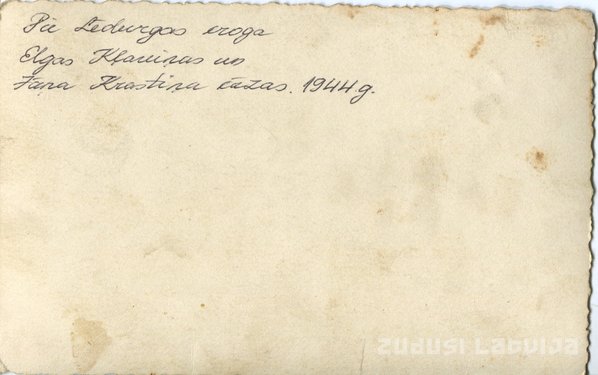 Pie Lēdurgas kroga
Elgas Kļaviņas un
Jāņa Krastiņa kāzas. 1944 g.
ZUDUSI LATVIJA